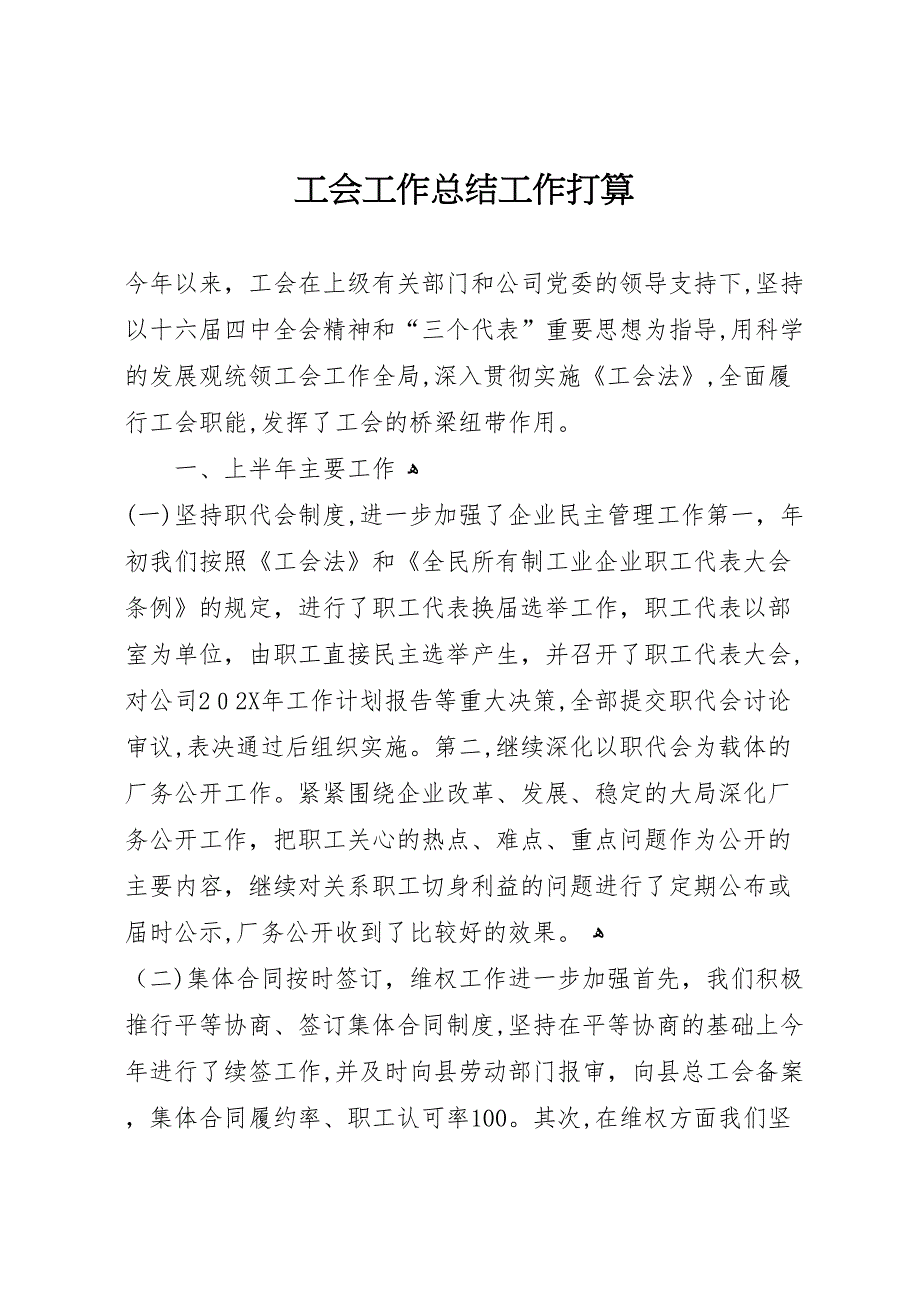 工会工作总结工作打算
今年以来，工会在上级有关部门和公司党委的领导支持下,坚持
以十六届四中全会精神和“三个代表”重要思想为指导,用科学
的发展观统领工会工作全局,深入贯彻实施《工会法》,全面履
行工会职能,发挥了工会的桥梁纽带作用。
一、上半年主要工作 ﻫ
(一)坚持职代会制度,进一步加强了企业民主管理工作第一，年
初我们按照《工会法》和《全民所有制工业企业职工代表大会
条例》的规定，进行了职工代表换届选举工作，职工代表以部
室为单位，由职工直接民主选举产生，并召开了职工代表大会,
对公司２０２X年工作计划报告等重大决策,全部提交职代会讨论
审议,表决通过后组织实施。第二,继续深化以职代会为载体的
厂务公开工作。紧紧围绕企业改革、发展、稳定的大局深化厂
务公开工作，把职工关心的热点、难点、重点问题作为公开的
主要内容，继续对关系职工切身利益的问题进行了定期公布或
届时公示,厂务公开收到了比较好的效果。 ﻫ
（二)集体合同按时签订，维权工作进一步加强首先，我们积极
推行平等协商、签订集体合同制度,坚持在平等协商的基础上今
年进行了续签工作,并及时向县劳动部门报审，向县总工会备案
，集体合同履约率、职工认可率100。其次,在维权方面我们坚